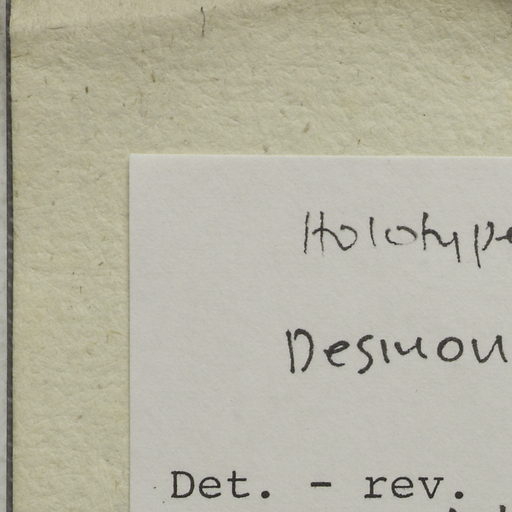 Holotype
Desmon
Det. - rev.